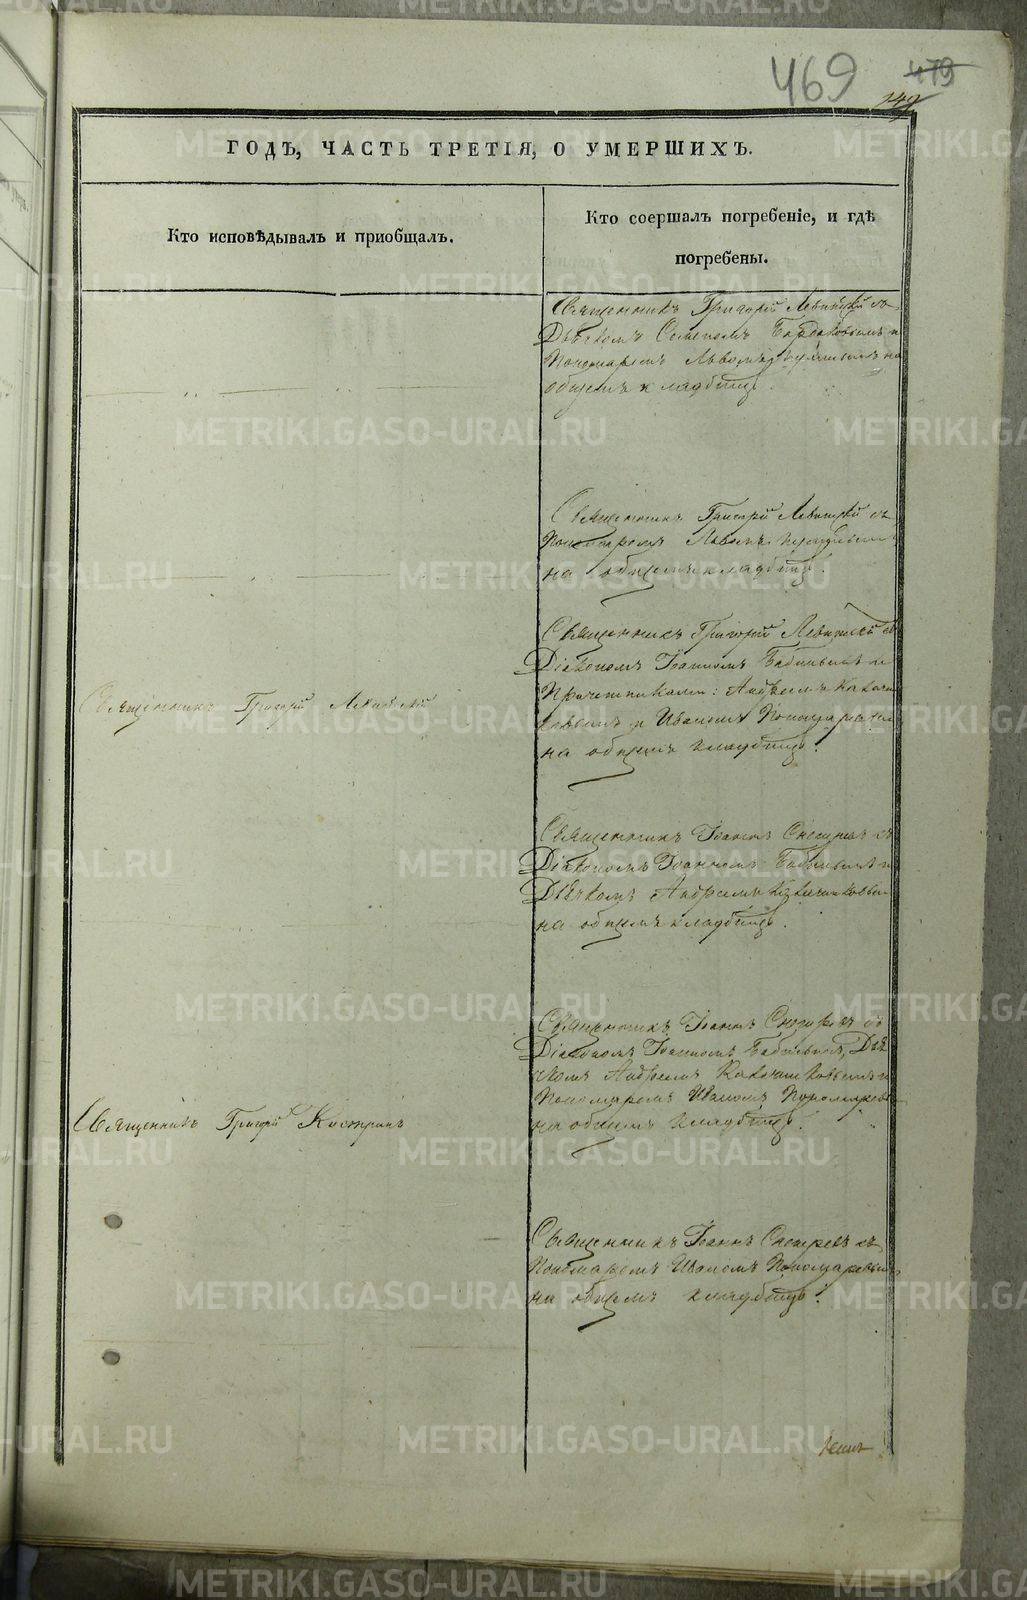 469 479
ГОДЪ, ЧАСТЬ ТРЕТІЯ, О УМЕРШИХЪ.
Кто исповѣдывалъ и приобщалъ.
Кто соершалъ погребеніе, и гдѣ
погребены.
Священникъ Григорій Левитскій съ
Дьячкомъ Семеномъ
Пономаремъ Львомъ на
общемъ кладбищѣ.
Священникъ Григорій Левитскій съ
Пономаремъ Львомъ
на общемъ кладбищѣ.
Священникъ Григорій Левитскій съ
Діакономъ Іоанномъ Бабинымъ и
Причетниками: Андреемъ
и Иваномъ Пономаревымъ
на общемъ кладбищѣ.
Священникъ Григорій Левитскій
Священникъ Іоаннъ Снегиревъ съ
Діакономъ Іоанномъ Бабинымъ и
Дьячкомъ Андреемъ
на общемъ кладбищѣ.
Священникъ Іоаннъ Снегиревъ съ
Діакономъ Іоанномъ Бабинымъ, Дья
чкомъ Андреемъ
Пономаремъ Иваномъ Пономаревымъ
на общемъ кладбищѣ.
Священникъ Григорій Костринъ
Священникъ Іоаннъ Снегиревъ съ
Пономаремъ Иваномъ Пономаревымъ
на общемъ кладбищѣ.
METRIKI.GASO-URAL.RU